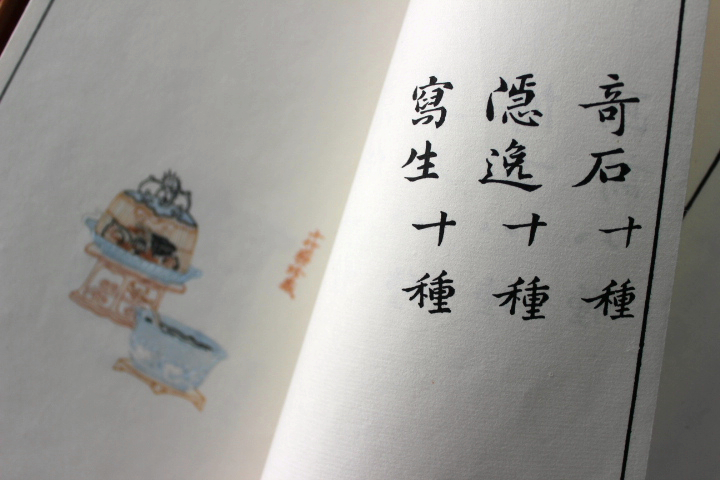 奇石十種
隱逸十種
寫生十種